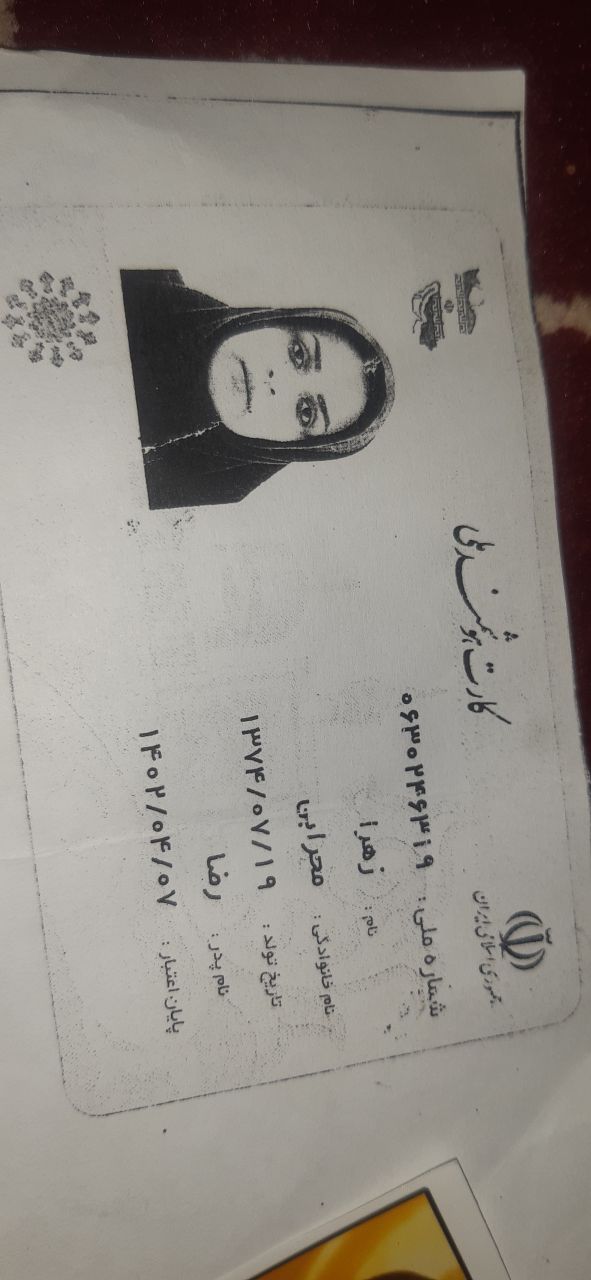 جمهوری اسلامی ایران
کارت هوشمند ملی
شماره ملی : ۰۶۳۰۲۴۶۳۱۹
نام : زهرا
نام خانوادگی : محرابی
تاریخ تولد : ۱۳۷۴/۰۷/۱۹
نام پدر : رضا
پایان اعتبار : ۱۴۰۲/۰۴/۰۷